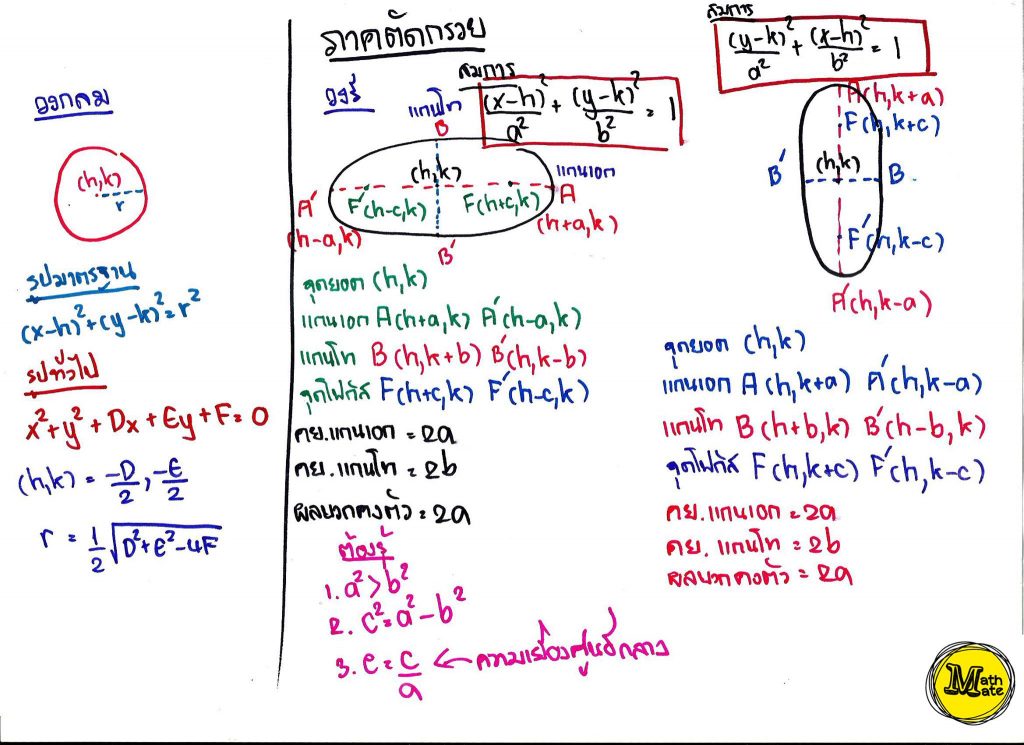 ภาคตัดกรวย
วงกลม
(h,k)
r
รูปมาตรฐาน
(x-h)²+(y-k)²=r²
รูปทั่วไป
x²+y²+Dx+Ey+F=0
(h,k) = -D/2, -E/2
r = 1/2 √D²+E²-4F
วงรี
สมการ
(x-h)²/a² + (y-k)²/b² = 1
แกนโท
B
(h,k)
แกนเอก
A'
(h-a,k)
F'(h-c,k)
F(h+c,k)
A
(h+a,k)
B'
จุดยอด (h,k)
แกนเอก A(h+a,k) A'(h-a,k)
แกนโท B(h,k+b) B'(h,k-b)
จุดโฟกัส F(h+c,k) F'(h-c,k)
คย.แกนเอก = 2a
คย.แกนโท = 2b
ผลบวกคงตัว = 2a
ต้องรู้
1. a²>b²
2. c²=a²-b²
3. e = c/a ← ความเยื้องศูนย์กลาง
สมการ
(y-k)²/a² + (x-h)²/b² = 1
A(h,k+a)
F(h,k+c)
B'
(h,k)
B
F'(h,k-c)
A'(h,k-a)
จุดยอด (h,k)
แกนเอก A(h,k+a) A'(h,k-a)
แกนโท B(h+b,k) B'(h-b,k)
จุดโฟกัส F(h,k+c) F'(h,k-c)
คย.แกนเอก = 2a
คย.แกนโท = 2b
ผลบวกคงตัว = 2a
Math
Mate